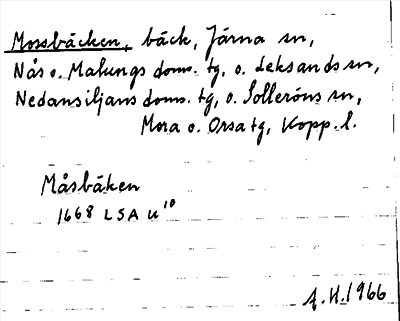 Mossbäcken, bäck, Järna sn,
Nås o. Malungs doms. tg, o. Leksands sn,
Nedansiljans doms. tg, o. Solleröns sn,
Mora o. Orsa tg, Kopp. l.
Måsbäken
1668 LSA U¹⁰
A.H. 1966